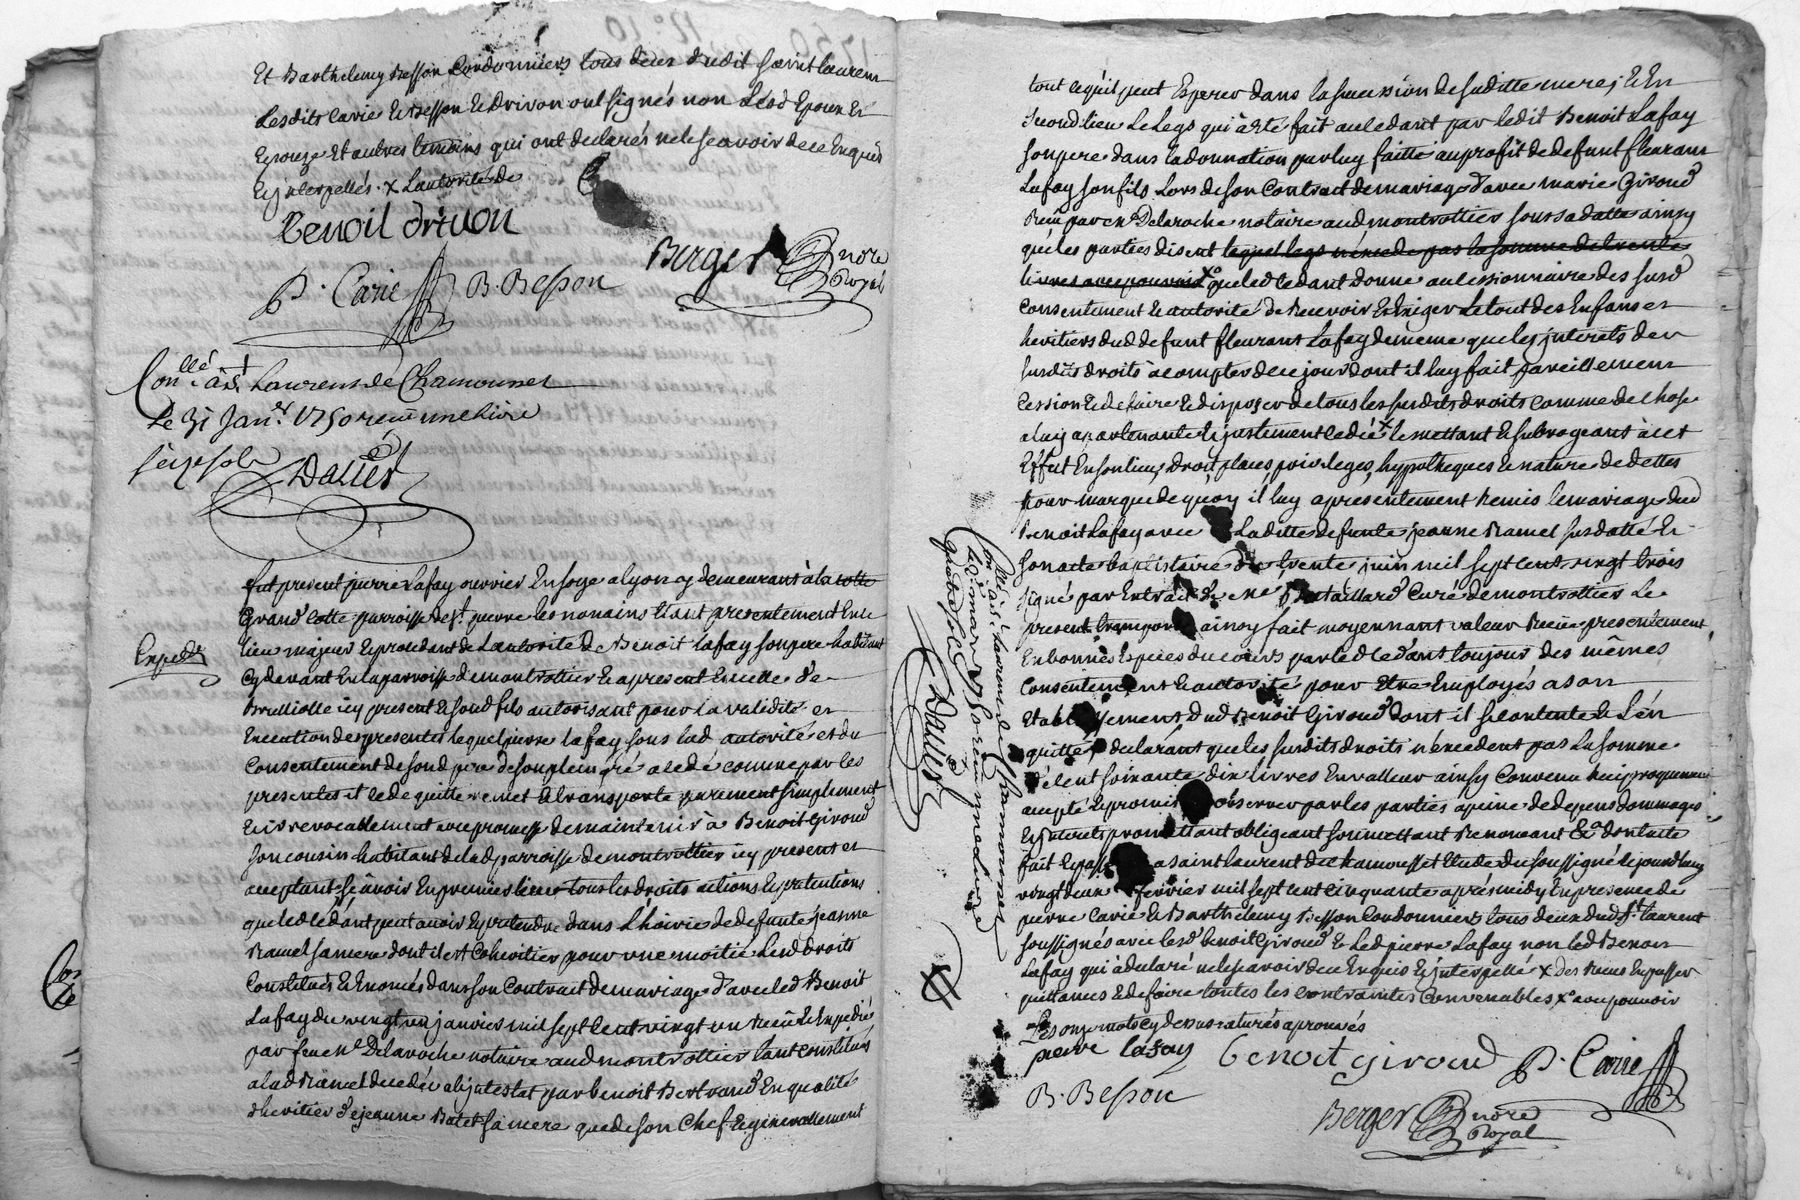 Et Barthelemy Besson Cordonniers tous deux dudit saint laurent
Lesdits Carie & Besson & Drivon ont signés non Lesd Epoux Et
Epouze Et autres temoins qui ont declarés ne le scavoir de ce Enquis
& jnterpellés. x Lautorité de
Benoit drivon
P. Carie B. Besson Berger nore
Royal
Con.llé à St Laurens de Chamousset
Le 31 Janer. 1750 receu une livre
seize sols
Daller
fut present pierre Lafay ouvrier En soye a lyon y demeurant à la cotte
Grand Cotte parroisse de St. pierre les nonains Etant presentement En ce
Expedié
lieu majeur & procedant de Lautorité de Benoit Lafay son pere habitant
Cy devant En la parroisse de montrottier & a present En celle de
Brulliolle icy present & son d fils autorisant pour la validité et
Execution des presentes lequel pierre Lafay sous lad autorité et du
Consentement de sond pere de son plein gré a cedé comme par les
presentes il cede quitte remet & transporte purement simplement
& irrevocablement avec promesse de maintenir à Benoit Giroud
son cousin habitant de lad parroisse de montrottier icy present et
acceptant scavoir En premier lieu tous les droits actions & pretentions
que led cédant peut avoir & pretendre dans L'hoirie de defunte jeanne
Ramel sa mere dont il est Coheritier pour une moitié Lesd droits
Constitués & Enoncés dans son Contract de mariage d'avec led Benoit
Lafay du vingt un janvier mil sept cent vingt un Receu & Expedié
par feu me Delaroche notaire aud montrottier tant constitués
a lad Ramel decedée abjntestat par benoit Bertrand En qualité
d'heritier de jeanne Batet sa mere que de son Chef & generallement
tout ce qu'il peut Esperer dans la succession de saditte mere; & En
second lieu Le Legs qui à Eté fait au cedant par ledit Benoit Lafay
son pere dans la donnation par luy faitte au profit de defunt fleurant
Lafay son fils Lors de son Contract de mariage d'avec marie Giroud
Receu par me Delaroche notaire aud montrottier sous sa datte ainsy
que les parties disent lequel legs n'excede pas la somme de trente
livres avec pouvoir x que led cedant donne au cessionnaire des susd
Consentement & autorité de Recevoir & Exiger Le tout des Enfans et
heritiers dud defunt fleurant Lafay de meme que les jnterets des
susdits droits à compter de ce jour dont il luy fait pareillement
Cession & de faire & disposer de tous les susdits droits comme de chose
à luy apartenante & justement cedée x le mettant & subrogeant à cet
Effet En son lieu, droit, place, privileges, hyppotheques & nature de dettes
pour marque de quoy il luy a presentement Remis le mariage dud
Benoit Lafay avec Laditte defunte jeanne Ramel susdatté &
son acte baptistaire du trente juin mil sept cent vingt trois
signé par Extrait de me Curé de montrottier Le
present transport ainsy fait moyennant valeur Receue presentement
En bonnes Especes du cours par led cedant toujour des mêmes
Consentement & autorité pour Etre Employés a son
Etablissement dud Benoit Giroud dont il se contente & L'en
quitte, declarant que les susdits droits n'excedent pas La somme
de cent soixante dix livres En valleur ainsy Convenu Reciproquement
accepté & promis observer par les parties a peine de depens dommages
& jnterets promettant obligeant soumettant Renonceant &a dont acte
fait & passé a saint laurent de chamousset Etude du soussigné le jourd'huy
vingt deux fevrier mil sept cent cinquante après midy En presence de
pierre Carie & Barthelemy Besson Cordonniers tous deux dud St. laurent
soussignés avec lesd benoit Giroud & Led pierre Lafay non led Benoit
Lafay qui à declaré ne le scavoir de ce Enquis & jnterpellé x des Receus En passer
quittances & de faire toutes les contraintes Convenables, x avec pouvoir
Les onze mots cy dessus raturés aprouvés
pierre lafay benoit giroud P. Carie
B. Besson
Berger nore
Royal
Con.llé à St Laurens de Chamousset
Le 3 mars 1750 receu une livre
quatre sols
Daller